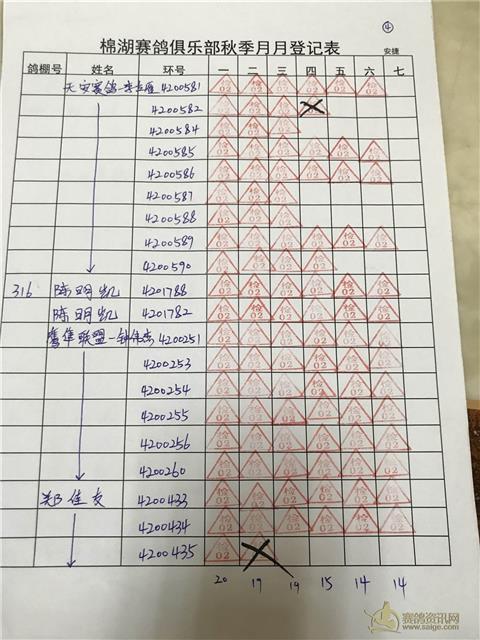 ④
棉湖赛鸽俱乐部秋季月月登记表
安捷
鸽棚号 姓名 环号 一 二 三 四 五 六 七
天安赛鸽-李 4200581 检02 检02 检02 检02 检02 检02
4200582 检02 检02 检02
4200584 检02 检02 检02
4200585 检02 检02 检02 检02 检02 检02
4200586 检02 检02 检02 检02 检02 检02
4200587 检02 检02 检02
4200588 检02 检02 检02
4200589 检02 检02 检02 检02 检02 检02
4200590 检02 检02 检02 检02
316 陈明凯 4201788 检02 检02 检02 检02 检02 检02
陈明凯 4201782 检02 检02 检02 检02 检02 检02
鹰隼联盟-钟伟忠 4200251 检02 检02 检02 检02 检02 检02
4200253 检02 检02 检02 检02 检02 检02
4200254 检02 检02 检02 检02 检02 检02
4200255 检02 检02 检02 检02 检02 检02
4200256 检02 检02 检02 检02 检02 检02
4200260 检02 检02 检02 检02 检02 检02
郑佳友 4200433 检02 检02 检02 检02 检02 检02
4200434 检02 检02 检02 检02 检02 检02
4200435 检02
20 19 19 15 14 14
赛鸽资讯网
www.saige.com